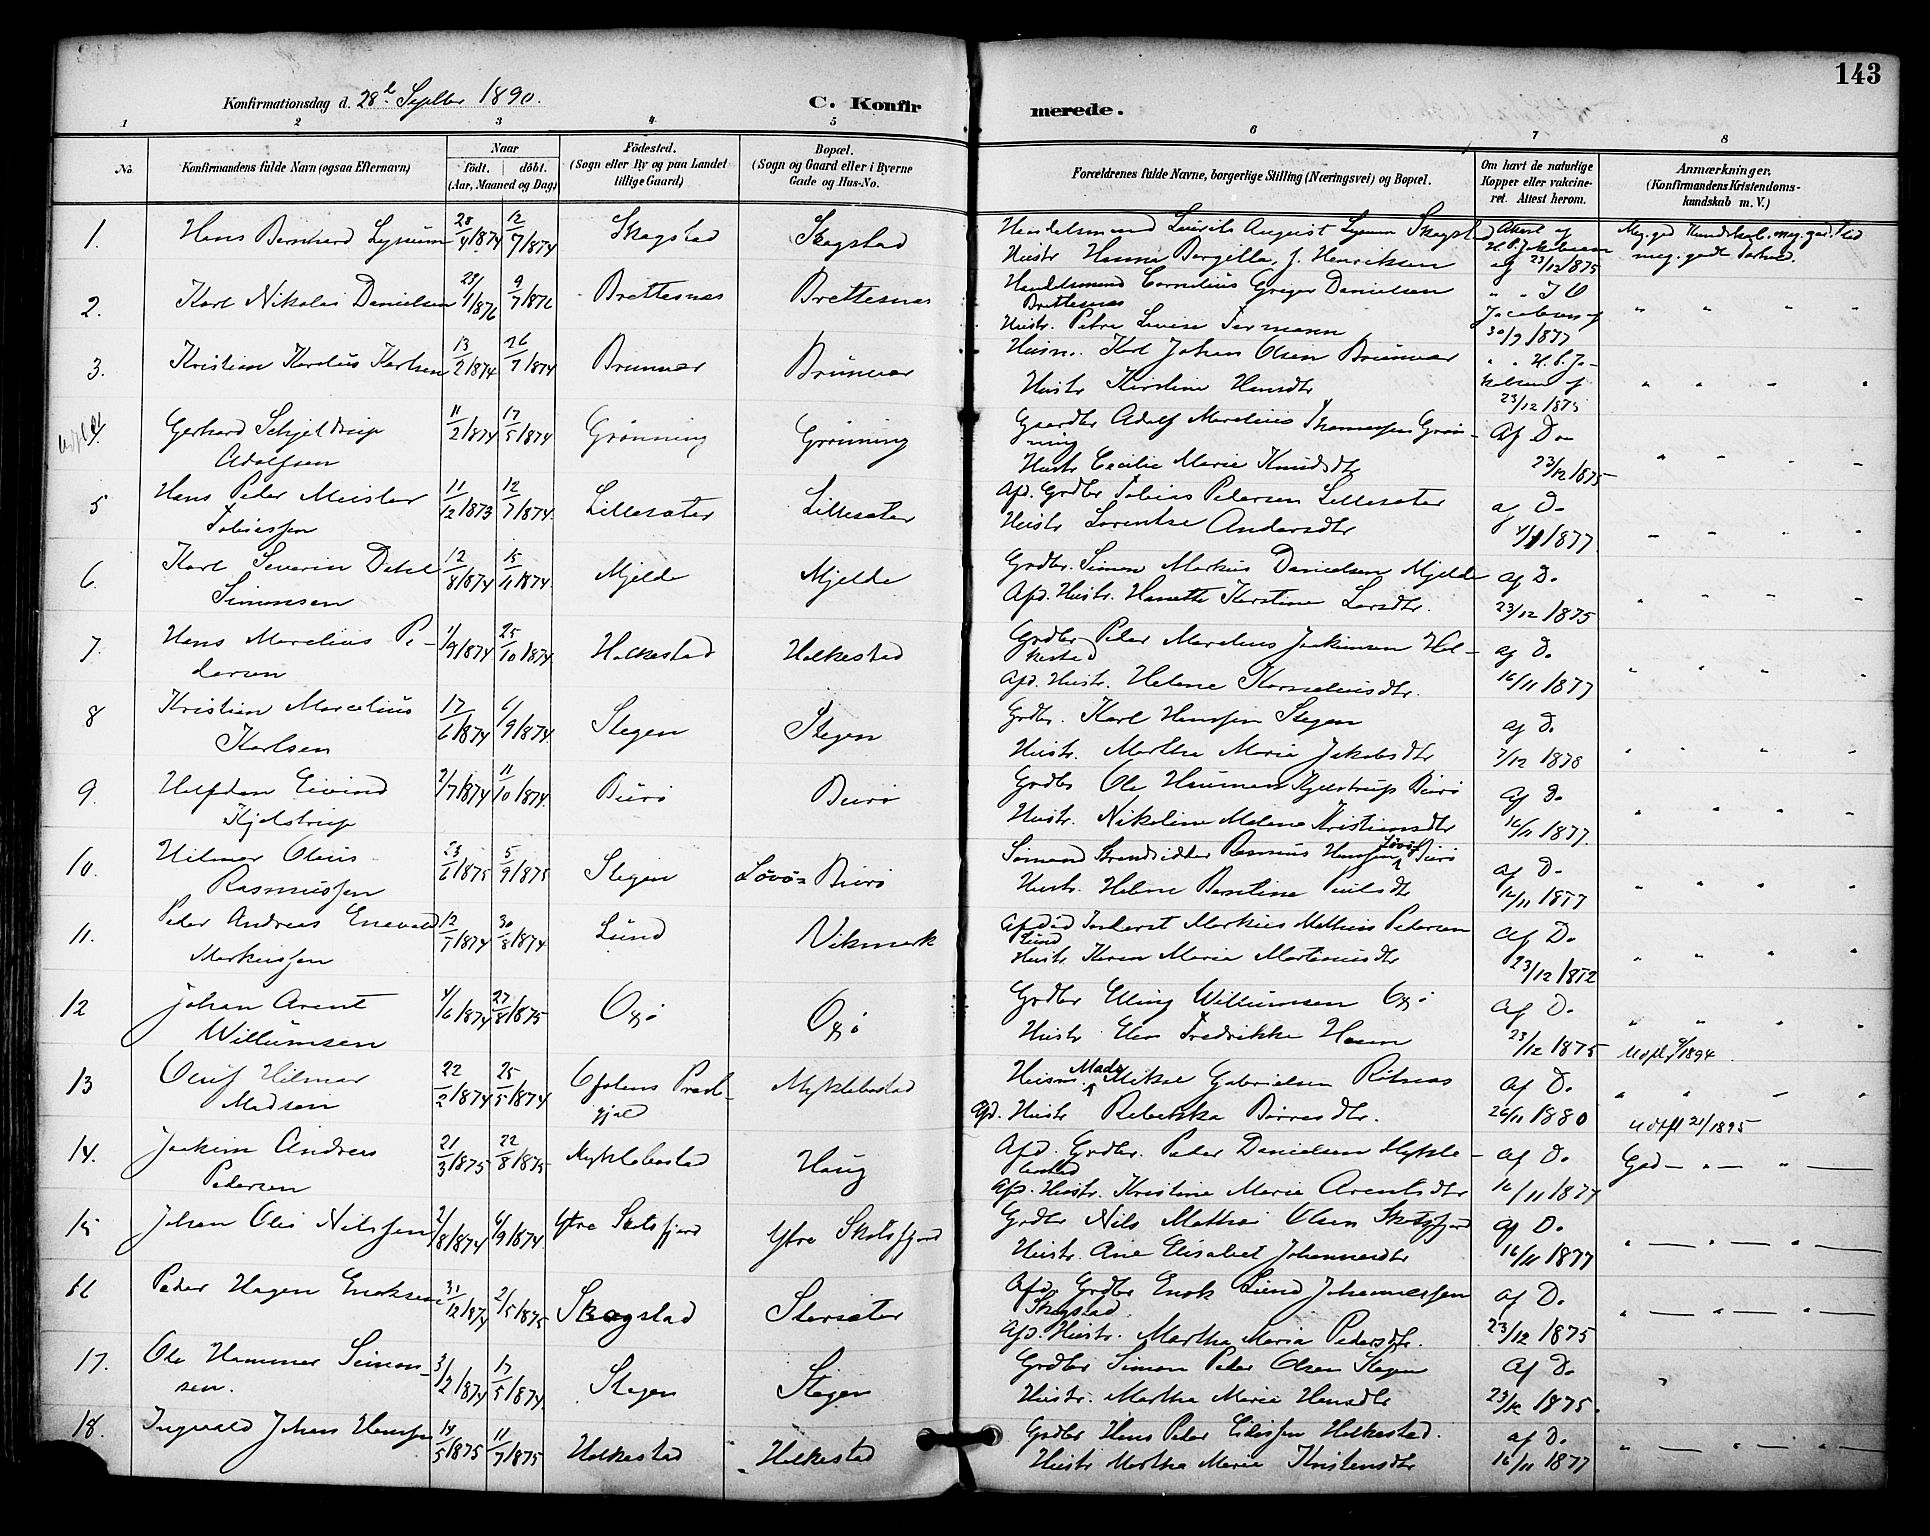 143
Konfirmationsdag d. 28de Septbr 1890.
C. Konfirmerede.
1 2 3 4 5 6 7 8
No.
Konfirmandens fulde Navn (ogsaa Efternavn)
Naar
födt. döbt.
(Aar, Maaned og Dag)
Födested.
(Sogn eller By og paa Landet
tillige Gaard)
Bopæl.
(Sogn og Gaard eller i Byerne
Gade og Hus-No.
Forældrenes fulde Navne, borgerlige Stilling (Næringsvei) og Bopæl.
Om havt de naturlige
Kopper eller vakcine-
ret. Attest herom.
Anmærkninger.
(Konfirmandens Kristendoms-
kundskab m. V.)
1. Hans Bernhard Lynum 28/4/1874 12/7/1874 Skagstad Skagstad Handelsmand Laurits August Lynum Skagstad Attest af
Hustr Hanna Bergitta, f. Henriksen H. P. Jakobsen
af 23/12/1875
Meg. god Kundskab. meg. god Flid
meg. godt Forhold.
2. Karl Nikolai Danielsen 23/1/1876 9/7/1876 Brettesnes Brettesnes Handelsmand Cornelius Greger Danielsen
Brettesnes
Hustr. Petra Lovise Formann
" " I O
Jacobsen af
30/9/1877
" " " "
3. Kristian Karelius Karlsen 13/2/1874 26/7/1874 Brunvær Brunvær Husm. Karl Johan Olsen Brunvær
Hustr Kirstine Hansdtr
" " H. P. Ja-
kobsen af
23/12/1875
" " " "
4. Gerhard Schjeldrup
Adolfsen 11/2/1874 17/5/1874 Grønning Grønning Gaardbr Adolf Marelius Thomassen Grøn-
ning
Hustr Cecilie Marie Knudsdtr
Af Do
23/12/1875
" " " "
5 Hans Peder Meister
Tobiassen 11/12/1873 12/7/1874. Lillesæter Lillesæter Afd. Grdbr Tobias Pedersen Lillesæter
Hustr Lorentse Andersdtr
af Do
1877
" " " "
6. Karl Severin Dahl
Simonsen 12/8/1874 15/11/1874. Mjelde Mjelde Grdbr. Simon Markus Danielsen Mjelde
Afd. Hustr. Hanette Kirstine Larsdtr.
af Do
23/12/1875
" " " "
7. Hans Marelius Pe-
dersen 1/9/1874 25/10/1874 Holkestad Holkestad Grdbr Peder Marelius Joakimsen Hol-
kestad
Afd. Hustr. Helene Korneliusdtr.
af Do
16/11/1877
" " " "
8 Kristian Marcelius
Karlsen 17/6/1874 6/9/1874 Stegen Stegen Grdbr. Karl Hanssen Stegen
Hustr. Martha Marie Jakobsdtr
af Do
7/12 1878
" " " "
9. Halfdan Eivind
Kjelstrup 2/7/1874 11/10/1874. Burø Burø Grdbr Ole Hauman Kjelstrup Burø
Hustr. Nikoline Malene Kristiansdtr
af Do
16/11 1877.
" " " "
10. Hilmar Olaus
Rasmussen 23/6/1875 5/9/1875 Stegen Løvø Burø Sømand Strandsidder Rasmus Hanssen Løvø Burø
Hustr. Helene Berntine Paulsdtr
af Do
16/11 1877
" " " "
11. Peder Andreas Enevold
Markussen 12/7/1874 30/8/1874 Lund Vikmark Afdød Inderst Markus Mathias Pedersen
Lund
Hustr Karen Maria Martinusdtr
Af Do
" " " "
12 Johan Arent
Willumsen 4/6/1874 27/8/1875 Oxø Oxø Grdbr Elling Willumsen Oxø
Hustr. Elen Fredrikke Hansen
Af Do
23/12 1875
" " " "
Udfl. 9/1894.
13 Oluf Hilmar
Madsen 22/2/1874 25/5/1874 Ofotens Præste-
gjæl Myklebostad Husm. Mads Mikal Gabrielsen Rotnæs
Afd. Hustr Rebekka Børresdtr.
Af Do
26/11 1880
" " " "
Udfl. 21/1895
14. Joakim Andreas
Pedersen 21/3/1875 22/8/1875 Myklebostad Haug Afd. Grdbr. Peder Danielsen Mykle-
bostad
Afd. Hustr. Kristine Marie Arentsdtr
af Do
16/11 1877
God — " — " —
15 Johan Olai Nilssen 2/8/1874 6/9/1874. Ytre Skotsfjord Ytre Skotsfjord Grdbr Nils Mathias Olsen Skotsfjord
Hustr. Ane Elisabet Johannesdtr
af Do
16/11 1877
" — " — " —
16 Peder Hagen Enoksen 31/12/1874 2/5/1875 Skagstad Storsæter Afd. Grdbr Enok Lund Johannessen
Skagstad.
Afd. Hustr. Martha Maria Pedersdtr.
af Do
23/12 1875
" — " — " —
17. Ole Hammer Simon-
sen. 3/2/1874 17/5/1874. Stegen Stegen Grdbr Simon Peder Olsen Stegen
Hustr. Martha Marie Hansdtr
Af Do
23/12 1875.
"
18. Ingvald Johan Hanssen 14/5/1875 11/7/1875 Holkestad Holkestad Grdbr Hans Peder Eidissen Holkestad.
Hustr Martha Marie Kristensdtr
af Do
16/11 1877
" — " — " —